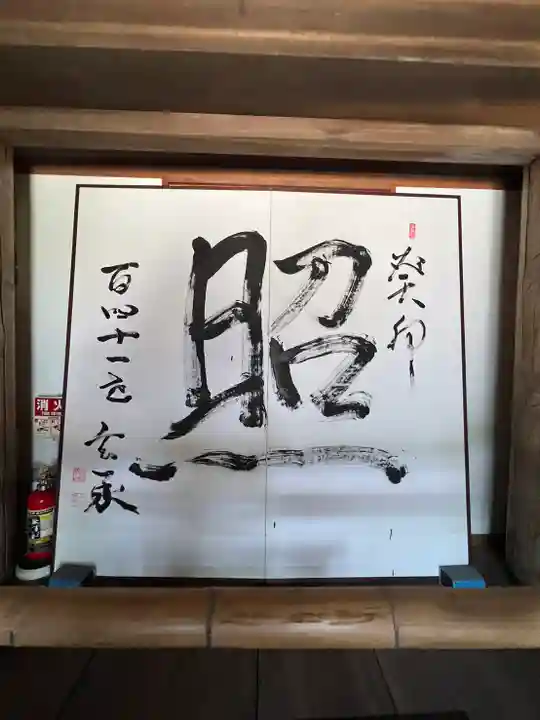 癸卯
照
百四十一老 玄承
消火